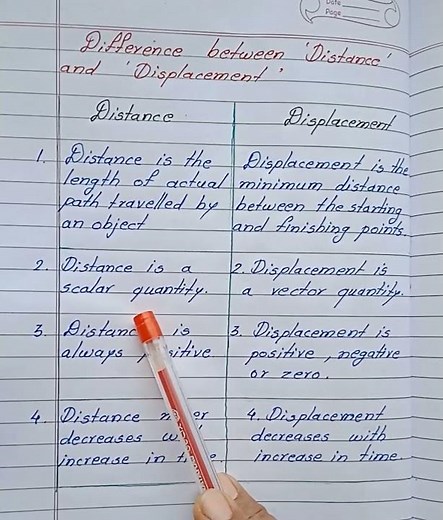 Date
Page
Difference between 'Distance'
and 'Displacement'
Distance
1. Distance is the
length of actual
path travelled by
an object
2. Distance is a
scalar quantity.
3. is
always
4. Distance
decreases
increase in
Displacement
Displacement is the
minimum distance
between the starting
and finishing points.
2. Displacement is
a vector quantity.
3. Displacement is
positive, negative
or zero.
4. Displacement
decreases with
increase in time